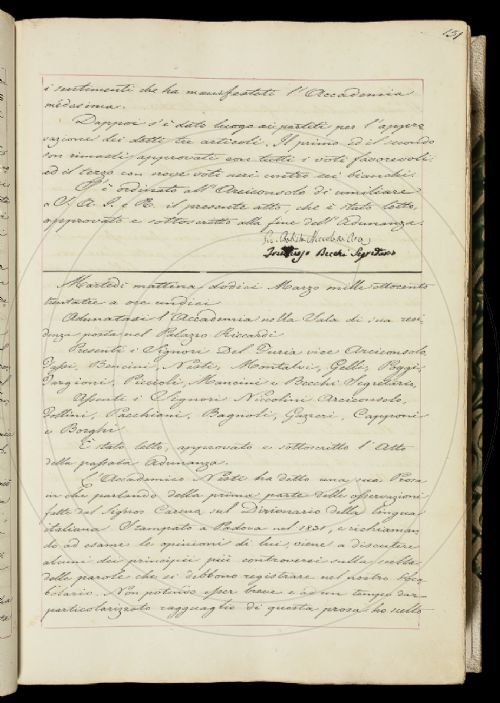 151
i sentimenti che ha manifestati l'Accademia
medesima.
Dappoi s'è dato luogo ai partiti per l'appro=
vazione dei detti tre articoli. Il primo ed il secondo
son rimasti approvati con tutti i voti favorevoli
ed il terzo con nove voti neri contro sei bianchi.
S'è ordinato all'Arciconsolo di umiliare
a S. A. I. e R. il presente atto, che è stato letto,
approvato e sottoscritto alla fine dell'Adunanza.
Fruttuoso Becchi Segretario
Martedì mattina dodici Marzo mille ottocento
trentatre a ore undici
Adunatasi l'Accademia nella Sala di sua resi
denza posta nel Palazzo Riccardi
Presenti i Signori Del Furia vice Arciconsolo,
Bencini, Nesti, Montalvi, Gelli, Poggi,
Targioni, Piccioli, Mancini e Becchi Segretario,
Assenti i Signori Niccolini Arciconsolo,
Follini, Pacchiani, Bagnoli, Gazzeri, Capponi
e Borghi
È stato letto, approvato e sottoscritto l'Atto
della passata Adunanza.
L'Accademico Nesti ha detto una sua Prosa
in che parlando della prima parte delle osservazioni
fatte dal Signor Carena sul Dizionario della lingua
italiana stampato a Padova nel 1831, e richiaman
do ad esame le opinioni di lui, viene a discutere
alcuni dei principii più controversi sulla scelta
delle parole che si debbono registrare nel nostro Voca
bolario. Non potendo esser breve e ad un tempo dar
particolarizzato ragguaglio di questa prosa, ho scelto